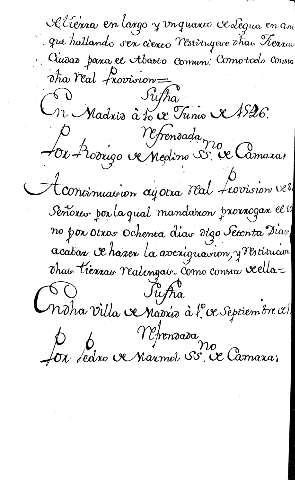 de tierra en largo y un quarto de Legua en an
que hallando ser cierto restituyere dhas Tierras
Ciudad para el Abasto comun: Como todo consta
dha real Provision=
Su fha
En Madrid à 10 de Junio de 1526.
Refrendada
Por Rodrigo de Medino SSno de Camara,
A continuacion ay otra real Provision de
Señores por la qual mandaron prorrogar el
no por otros ochenta dias digo Setenta Dias
acabar de hazer la averiguacion, y restitucion
dhas tierras realengas. como consta de ella=
Su fha
En dha Villa de Madrid à 1º de Septiembre de
Refrendada
Por Pedro de Marmol SSno de Camara,